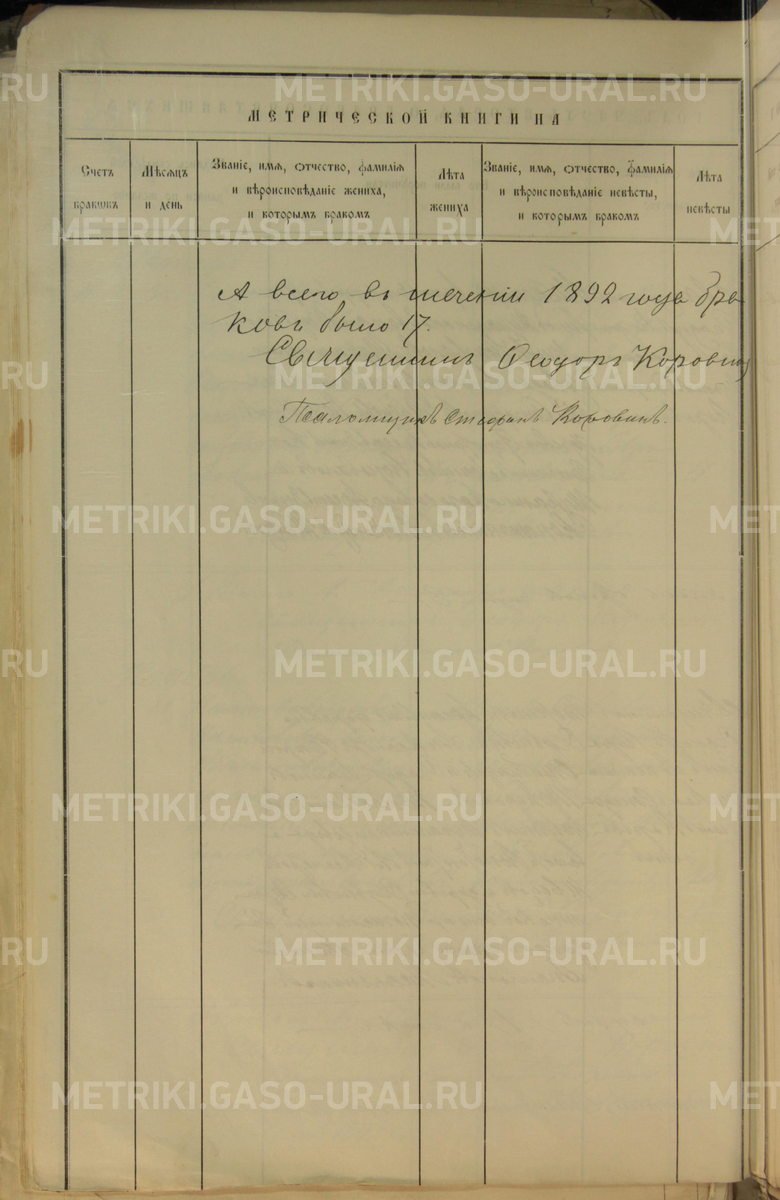 МЕТРИЧЕСКОЙ КНИГИ НА
Счетъ
браковъ
Мѣсяцъ
и день
Званіе, имя, отчество, фамилія
и вѣроисповѣданіе жениха,
и которымъ бракомъ
Лѣта
жениха
Званіе, имя, отчество, фамилія
и вѣроисповѣданіе невѣсты,
и которымъ бракомъ
Лѣта
невѣсты
А всего въ теченіи 1892 года бра
ковъ было 17.
Священникъ Ѳеодоръ Коровинъ
Псаломщикъ Стефанъ Коровинъ.
METRIKI.GASO-URAL.RU